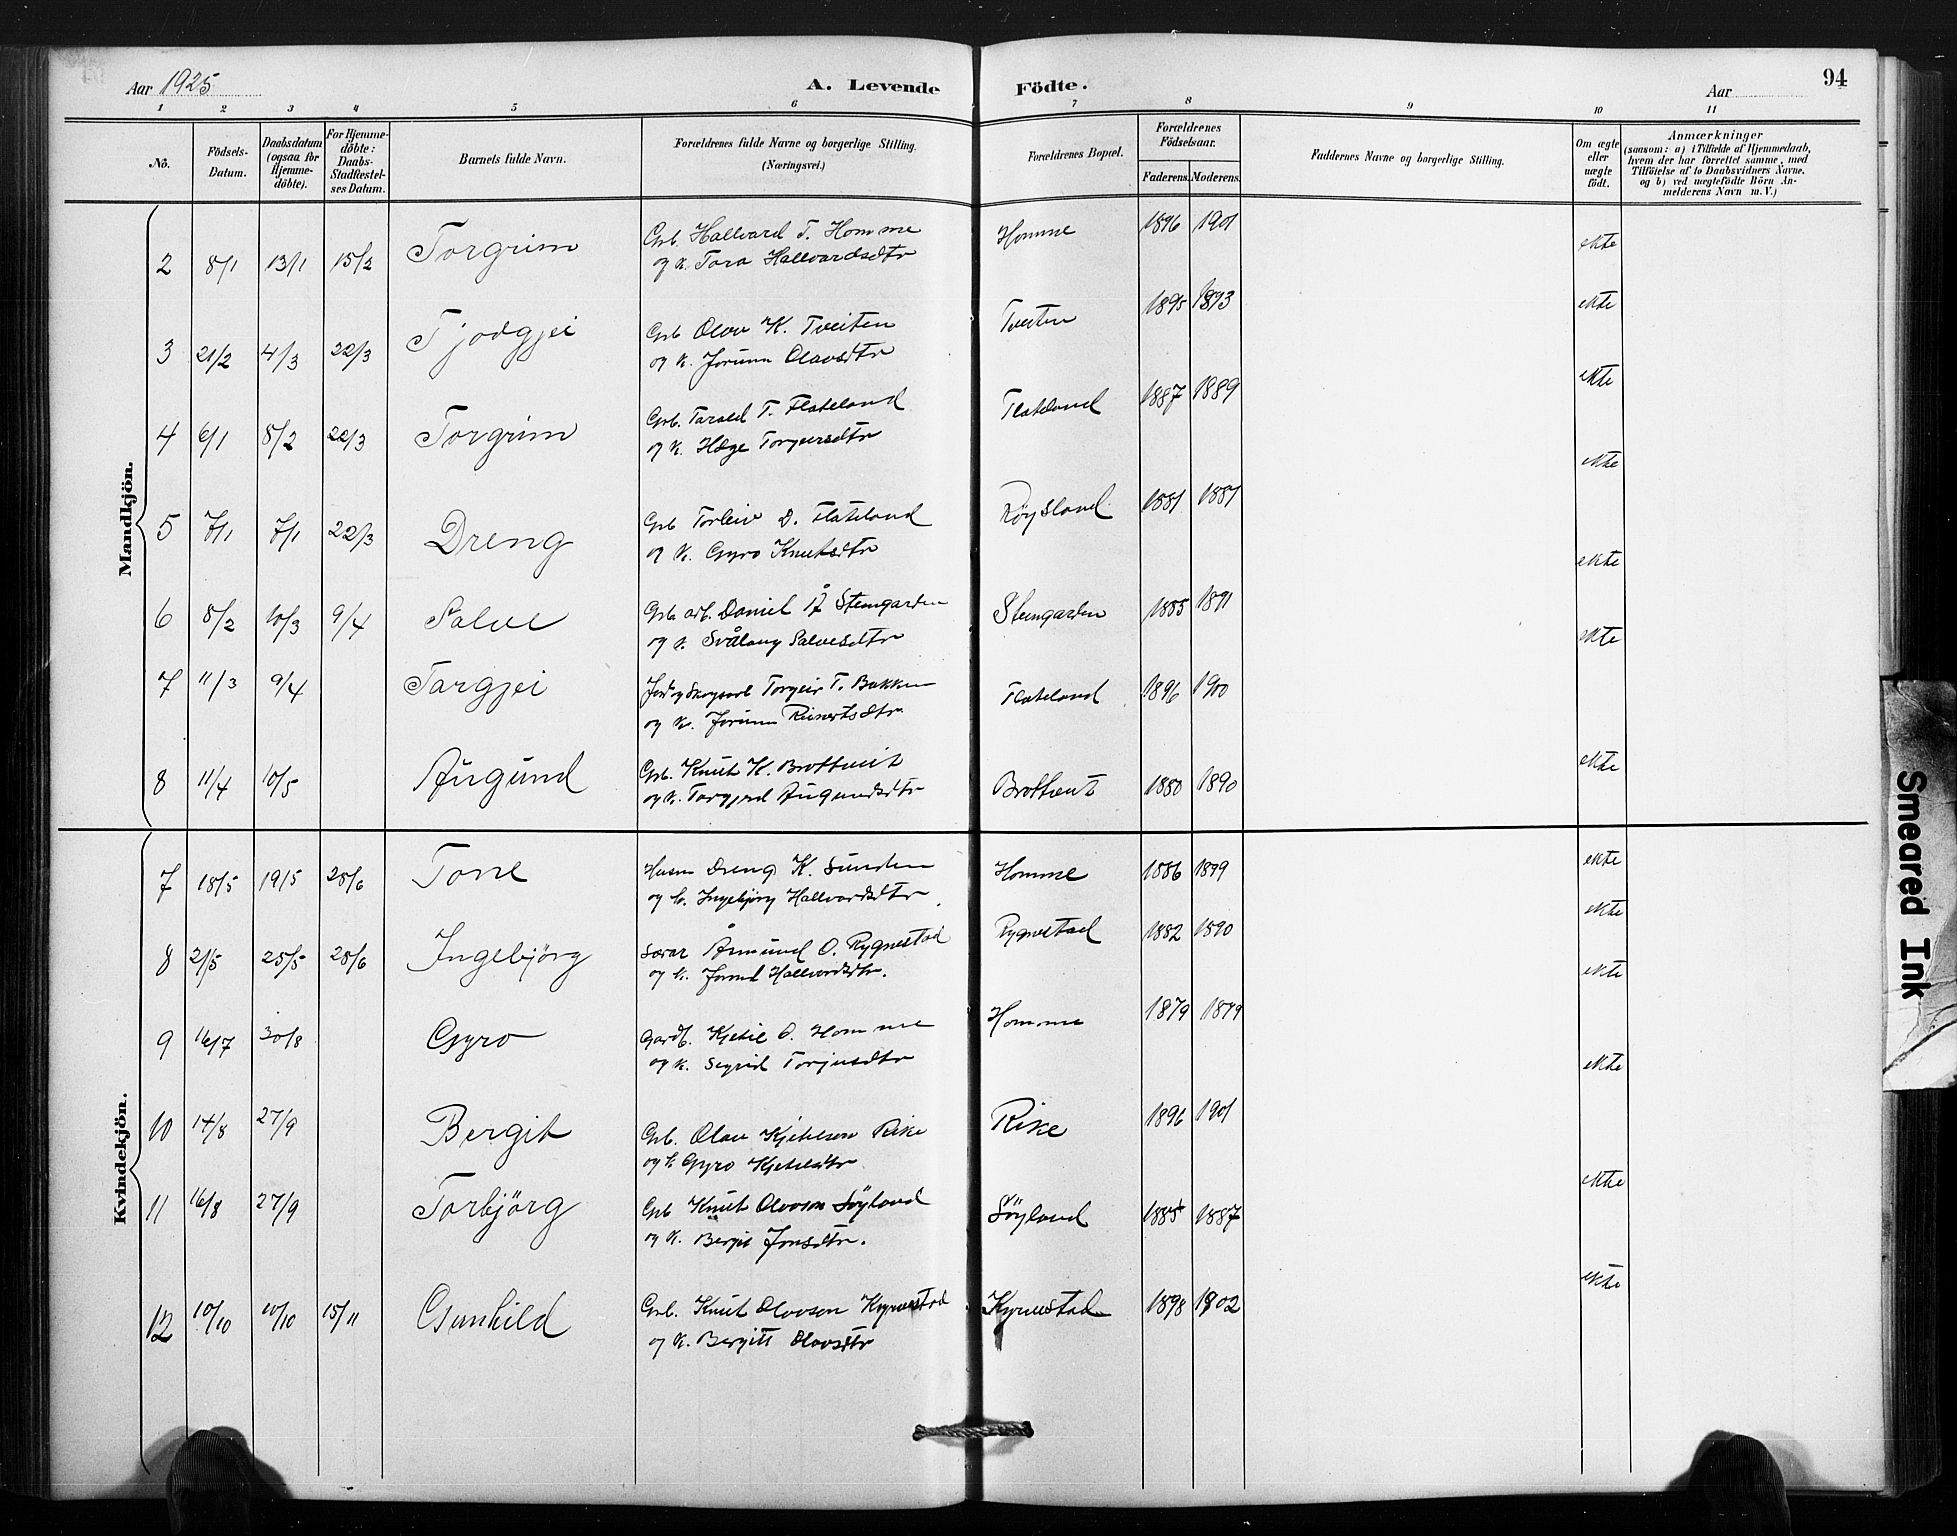 Aar 1925
A. Levende Födte.
Aar
94
1 2 3 4 5 6 7 8 9 10 11
Nô.
Födsels-
Datum.
Daabsdatum
(ogsaa for
Hjemme-
döbte).
For Hjemme-
döbte:
Daabs-
Stadfestel-
ses Datum.
Barnets fulde Navn.
Forældrenes fulde Navne og borgerlige Stilling.
(Næringsvei.)
Forældrenes Bopæl.
Forældrenes
Födselsaar.
Faderens. Moderens.
Faddernes Navne og borgerlige Stilling.
Om ægte
eller
uægte
født.
Anmærkninger
(saasom: a) i Tilfælde af Hjemmedaab,
hvem der har forrettet samme, med
Tilföielse af to Daabsvidners Navne,
og b) ved uægtefödte Börn An-
melderens Navn m.V.)
Mandkjön.
2 8/1 13/1 15/2 Torgrim Grb. Hallvard T. Homme Homme 1896 1901 ekte
og k. Tora Hallvardsdtr
3 21/2 4/3 22/3 Tjodgjei Grb Olav K. Tveiten Tveiten 1895 1893 ekte
og k. Jorunn Olavsdtr
4 6/1 8/2 22/3 Torgrim Grb. Tarald T. Flateland Flateland 1887 1889 ekte
og k. Hæge Torgeirsdtr
5 7/1 7/1 22/3 Dreng Grb Torleiv D. Flateland Røysland 1881 1881 ekte
og k. Gyro Knutsdtr
ekte
6 8/2 10/3 9/4 Salve Grb arb. Daniel Å Steingarden Steingarden 1885 1891 ekte
og k. Svålaug Salvesdtr
7 11/3 9/4 Targjei Jord og Skogsarb Torgeir T. Bakken Flateland 1896 1900
og k. Jorunn Reinertsdtr
8 11/4 10/5 Augund Grb. Knut K. Brottveit Brottveit 1880 1890 ekte
og k. Torgjerd Augundsdtr
Kvindekjön.
7 18/5 19/5 28/6 Tone Husm Dreng K. Sunden Homme 1886 1899 ekte
og k. Ingebjørg Hallvardsdtr.
8 2/5 25/5 28/6 Ingebjörg Åmund O. Rygnestad Rygnestad 1882 1890 ekte
og k. Hallvardsdtr. ekte
9 16/7 30/8 Gyro Gardb. Kjetil O. Homme Homme 1879 1879
og k. Sigrid Torjusdtr ekte
10 14/8 27/9 Bergit Grb. Olav Kjetilson Rike Rike 1896 1901
og k Gyro Kjetilsdtr
11 16/8 27/9 Torbjörg Grb Knut Olavson Söyland Söyland 1885 1887 ekte
og k. Bergit Jonsdtr.
12 10/10 10/10 15/11 Gunhild Grb. Knut Olavson Kyrvestad Kyrvestad 1898 1902 ekte
og k. Bergitt Olavsdtr
Smeared Ink